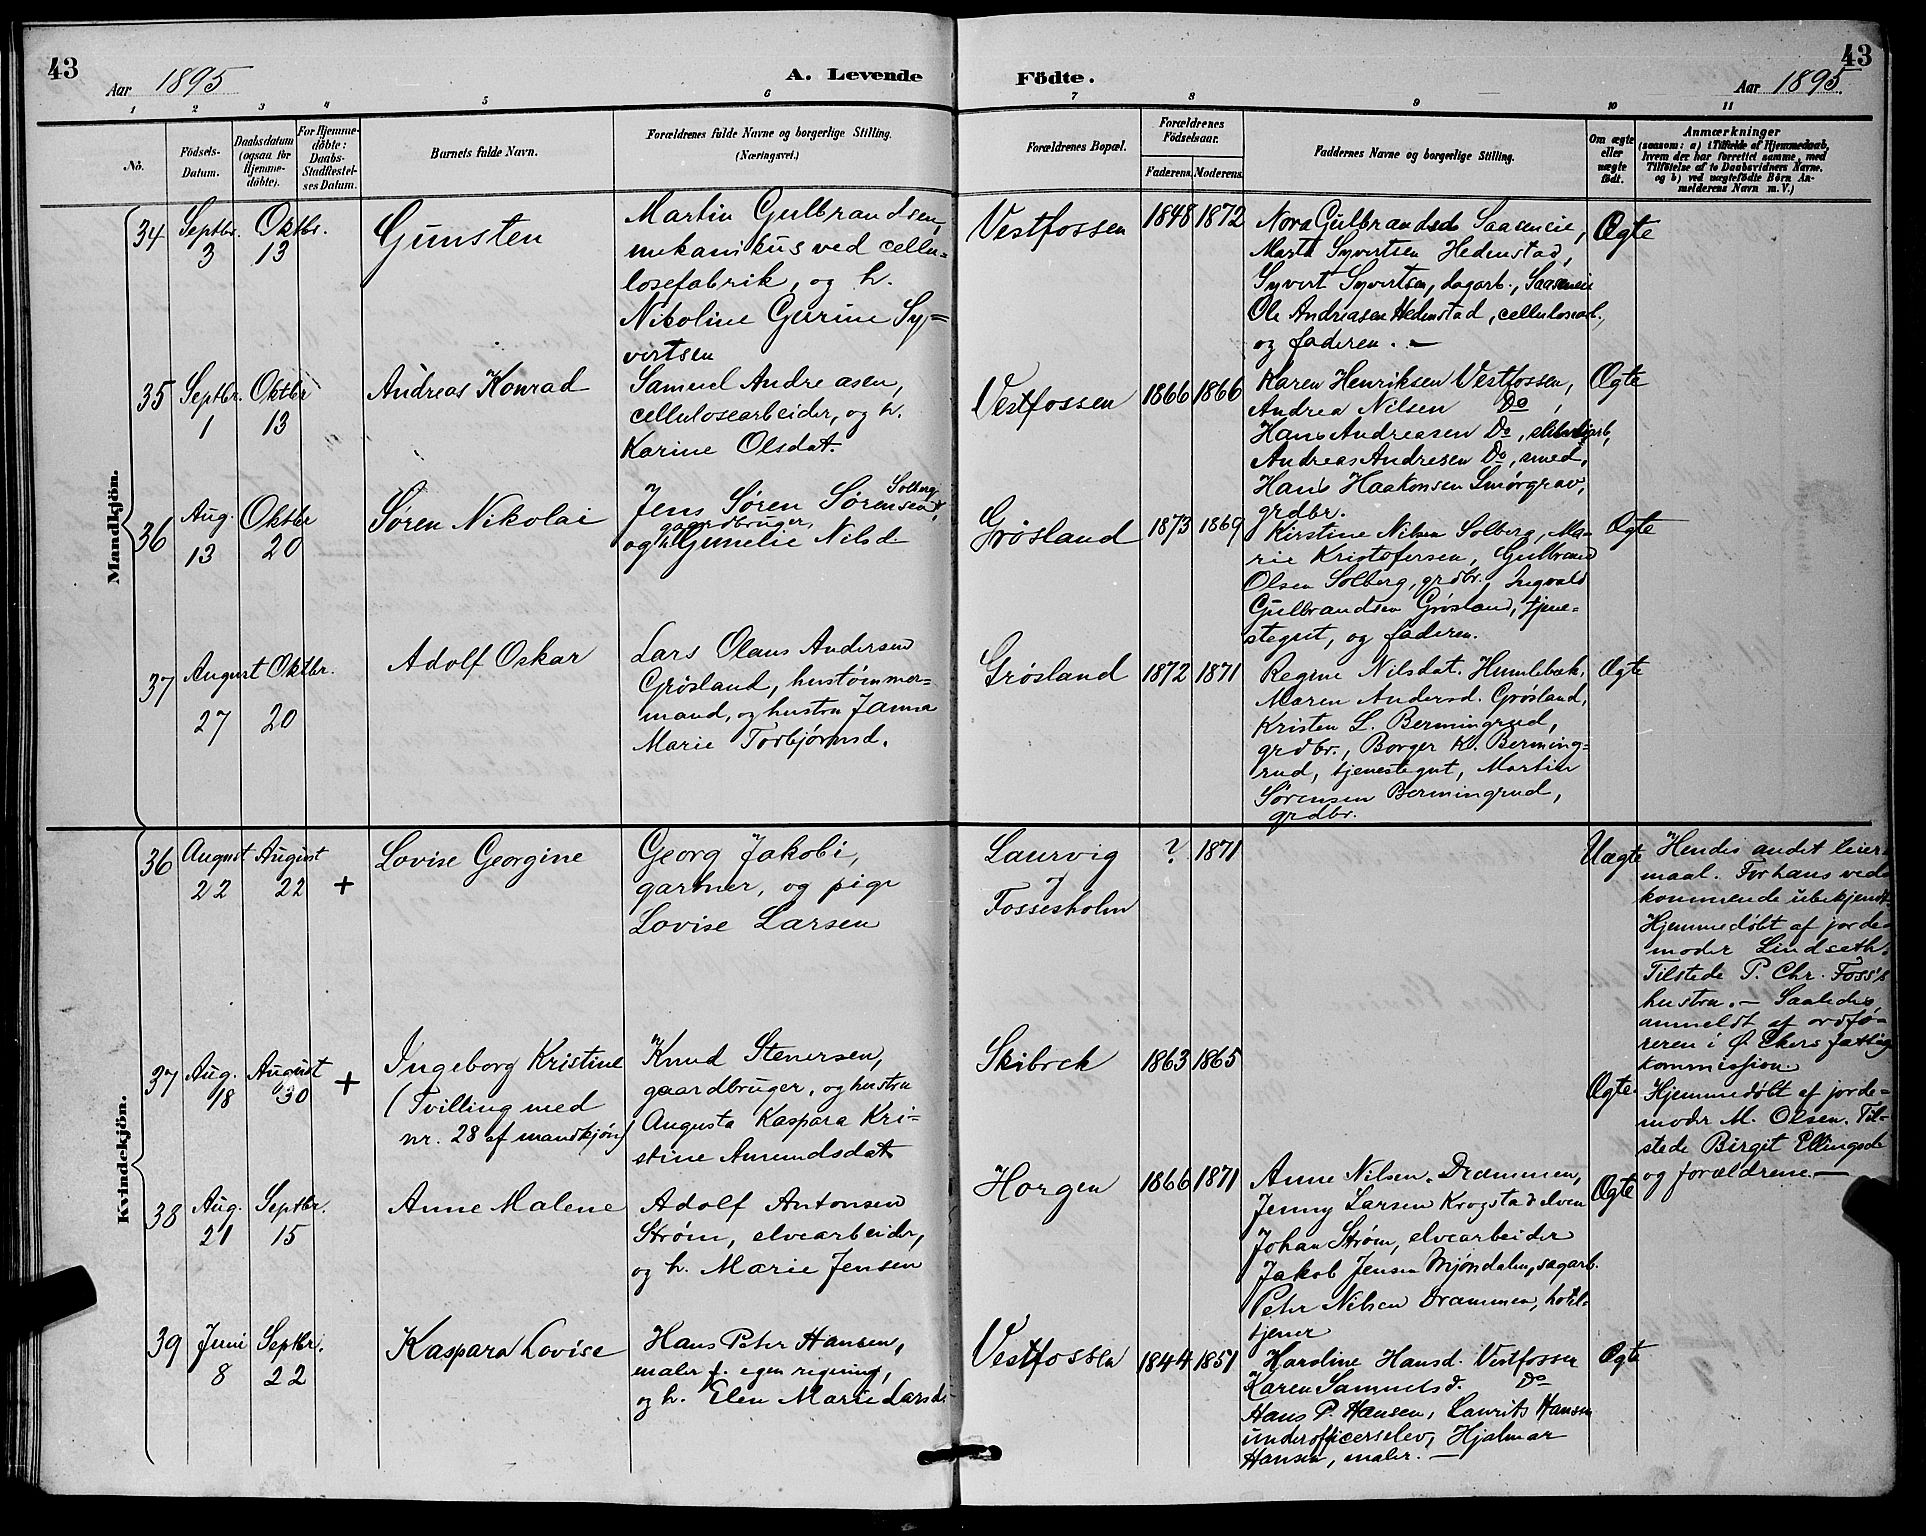 43
Aar 1895
A. Levende
Födte.
Aar 1895.
43
1 2 3 4 5 6 7 8 9 10 11
No.
Födsels-
Datum.
Daabsdatum
(ogsaa for
Hjemme-
döbte).
For Hjemme-
döbte:
Daabs-
Stadfæstel-
ses Datum.
Barnets fulde Navn.
Forældrenes fulde Navne og borgerlige Stilling.
(Næringsvei.)
Forældrenes Bopæl.
Forældrenes
Födselsaar.
Faderens. Moderens.
Faddernes Navne og borgerlige Stilling.
Om ægte
eller
uægte
födt.
Anmærkninger
(saasom: a) i Tilfælde af Hjemmedaab,
hvem der har forrettet samme, med
Tilföielse af to Daabsvidners Navne,
og b) ved uægtefödte Börn An-
melderens Navn m. V.)
Mandkjön.
34
Septbr.
3
Oktbr.
13
Gunsten
Martin Gulbrandsen,
mekanikus ved cellu-
losefabrik, og h.
Nikoline Gurine Sy-
vertsen
Vestfossen
1848 1872
Nora Gulbrandsd Saaseneie,
Marta Syvertsen Hedenstad,
Syvert Syvertsen, dagarb., Saaseneie
Ole Andreasen Hedenstad, cellulosearb.,
og faderen. —
Ægte
35
Septbr.
1
Oktbr
13
Andreas Konrad
Samuel Andreasen,
cellulosearbeider, og h.
Karine Olsdat.
Vestfossen
1866 1866
Karen Henriksen Vestfossen,
Andrea Nilsen Do,
Hans Andreasen Do,
Andreas Andresen Do, smed,
Hans Haakonsen Smörgrav,
grdbr.
Ægte
36
Aug.
13
Oktbr
20
Søren Nikolai
Jens Søren Sørensen Solberg,
gaardbruger,
og h. Gunelie Nilsd
Grøsland
1873 1869
Kirstine Nilsen Solberg, Ma-
rie Kristofersen, Gulbrand
Olsen Solberg, grdbr., Ingvald
Gulbrandsen Grøsland, tjene-
stegut, og faderen.
Ægte
37
August
27
Oktbr.
20
Adolf Oskar
Lars Olaus Andersen
Grøsland, hustømmer-
mand, og hustru Janna
Marie Torbjørnsd.
Grøsland
1872 1871
Regine Nilsdat. Humlebæk,
Maren Andersd. Grøsland,
Kristen L. Bermingrud,
grdbr., Borger K. Berming-
rud, tjenestegut, Martin
Sørensen Bermingrud,
grdbr.
Ægte
Kvindekjön.
36
August
22
August
22
+
Lovise Georgine
Georg Jakobi,
gartner, og pige
Lovise Larsen
Laurvig
og
Fossesholm
? 1871
Uægte
Hendes andet leier-
maal. For hans ved-
kommende ubekjendt.
Hjemmedøbt af jorde-
moder Lindseth.
Tilstede P. Chr. Foss's
hustru. — Saaledes
anmeldt af ordfø-
reren i Ø. Ekers fattig-
kommission.
37
Aug.
18
August
30
+
Ingeborg Kristine
(Tvilling med
nr. 28 af mandkjøn)
Knud Stenersen,
gaardbruger, og hustru
Augusta Kaspara Kri-
stine Amundsdat
Skibrek
1863 1865
Ægte.
Hjemmedøbt af jorde-
moder M. Olsen. Til-
stede Birgit Ellingsd.
og forældrene. —
38
Aug.
21
Septbr.
15
Anne Malene
Adolf Antonsen
Strøm, elvearbeider,
og h. Marie Jensen
Horgen
1866 1871
Anne Nilsen Drammen,
Jenny Larsen Krogstadelven
Johan Strøm, elvearbeider
Jakob Jensen Mjöndalen, sagarb.
Peter Nilsen Drammen, hotel-
tjener
Ægte
39
Juni
8
Septbr.
22
Kaspara Lovise
Hans Peter Hansen,
maler f. egen regning,
og h. Elen Marie Larsd.
Vestfossen
1844 1851
Karoline Hansd. Vestfossen
Karen Samuelsd. Do
Hans P. Hansen, Laurits Hansen
underofficerselev, Hjalmar
Hansen, maler. —
Ægte